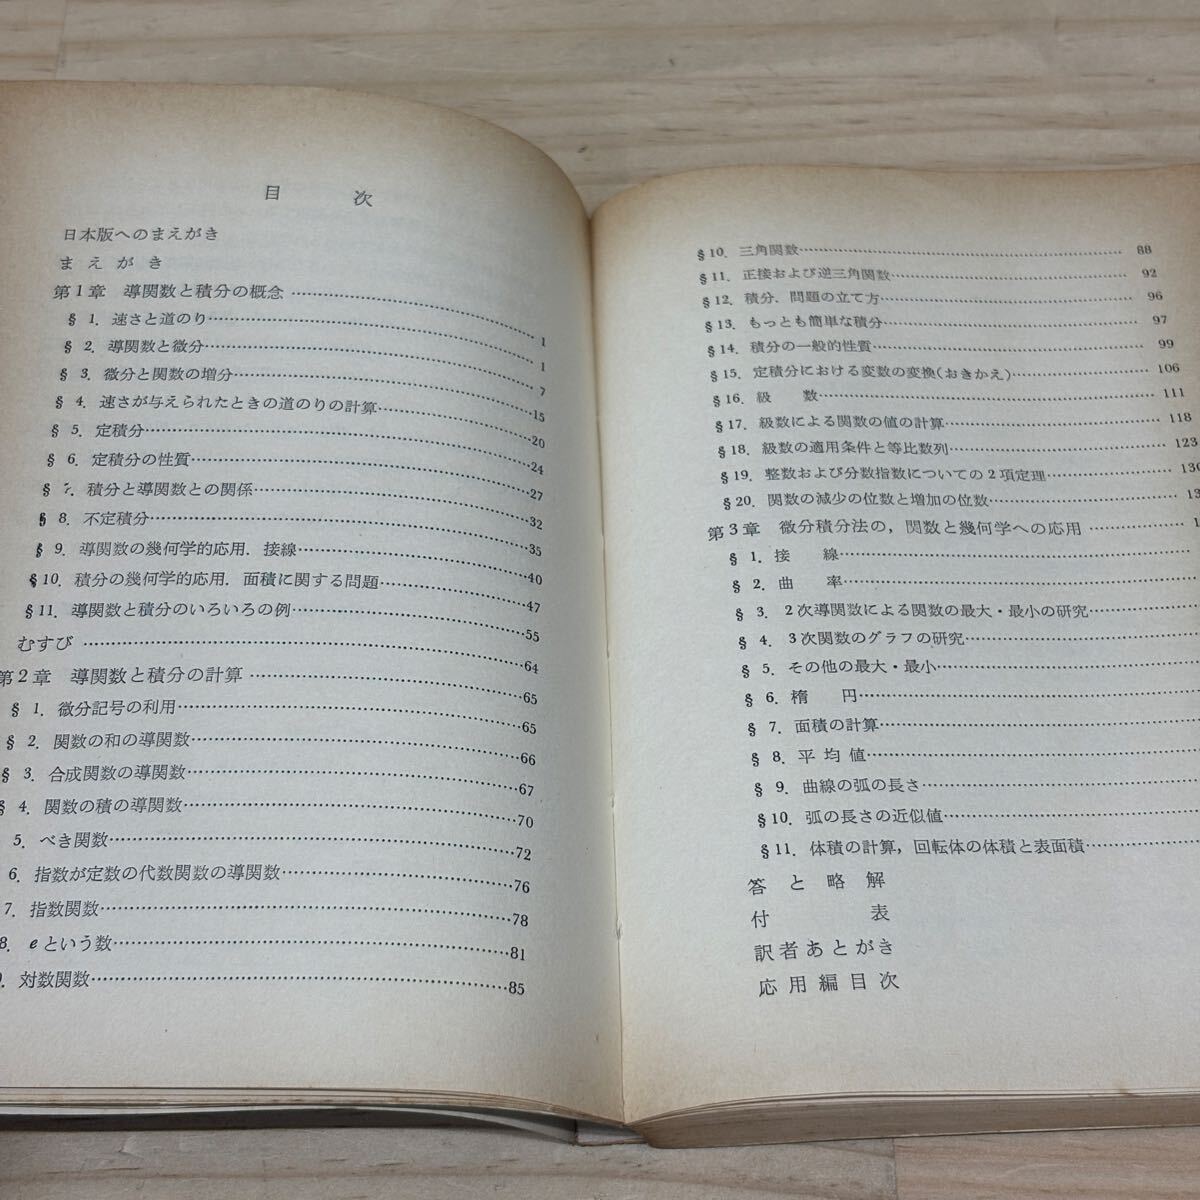 目 次
日本版へのまえがき
まえがき
第1章 導関数と積分の概念……1
§ 1. 速さと道のり……1
§ 2. 導関数と微分……7
§ 3. 微分と関数の増分……15
§ 4. 速さが与えられたときの道のりの計算……20
§ 5. 定積分……24
§ 6. 定積分の性質……27
§ 7. 積分と導関数との関係……32
§ 8. 不定積分……35
§ 9. 導関数の幾何学的応用．接線……40
§10. 積分の幾何学的応用．面積に関する問題……47
§11. 導関数と積分のいろいろの例……55
むすび……64
第2章 導関数と積分の計算……65
§ 1. 微分記号の利用……65
§ 2. 関数の和の導関数……66
§ 3. 合成関数の導関数……67
§ 4. 関数の積の導関数……70
5. べき関数……72
6. 指数が定数の代数関数の導関数……76
7. 指数関数……78
8. eという数……81
対数関数……85
§10. 三角関数……88
§11. 正接および逆三角関数……92
§12. 積分．問題の立て方……96
§13. もっとも簡単な積分……97
§14. 積分の一般的性質……99
§15. 定積分における変数の変換(おきかえ)……106
§16. 級 数……111
§17. 級数による関数の値の計算……118
§18. 級数の適用条件と等比数列……123
§19. 整数および分数指数についての2項定理……130
§20. 関数の減少の位数と増加の位数……13
第3章 微分積分法の，関数と幾何学への応用……1
§ 1. 接 線……
§ 2. 曲 率……
§ 3. 2次導関数による関数の最大・最小の研究……
§ 4. 3次関数のグラフの研究……
§ 5. その他の最大・最小……
§ 6. 楕 円……
§ 7. 面積の計算……
§ 8. 平均値……
§ 9. 曲線の弧の長さ……
§10. 弧の長さの近似値……
§11. 体積の計算，回転体の体積と表面積……
答と略解
付 表
訳者あとがき
応用編目次